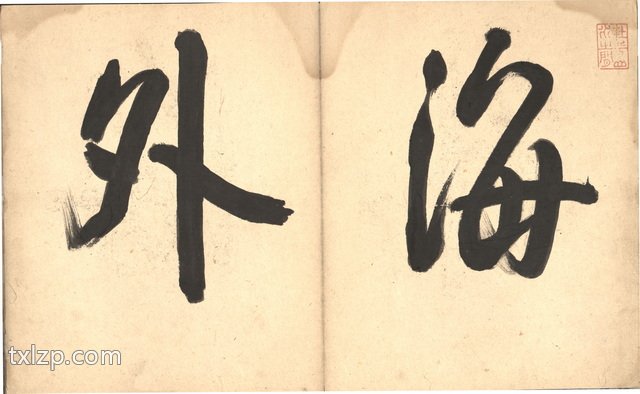 海外
txlzp.com